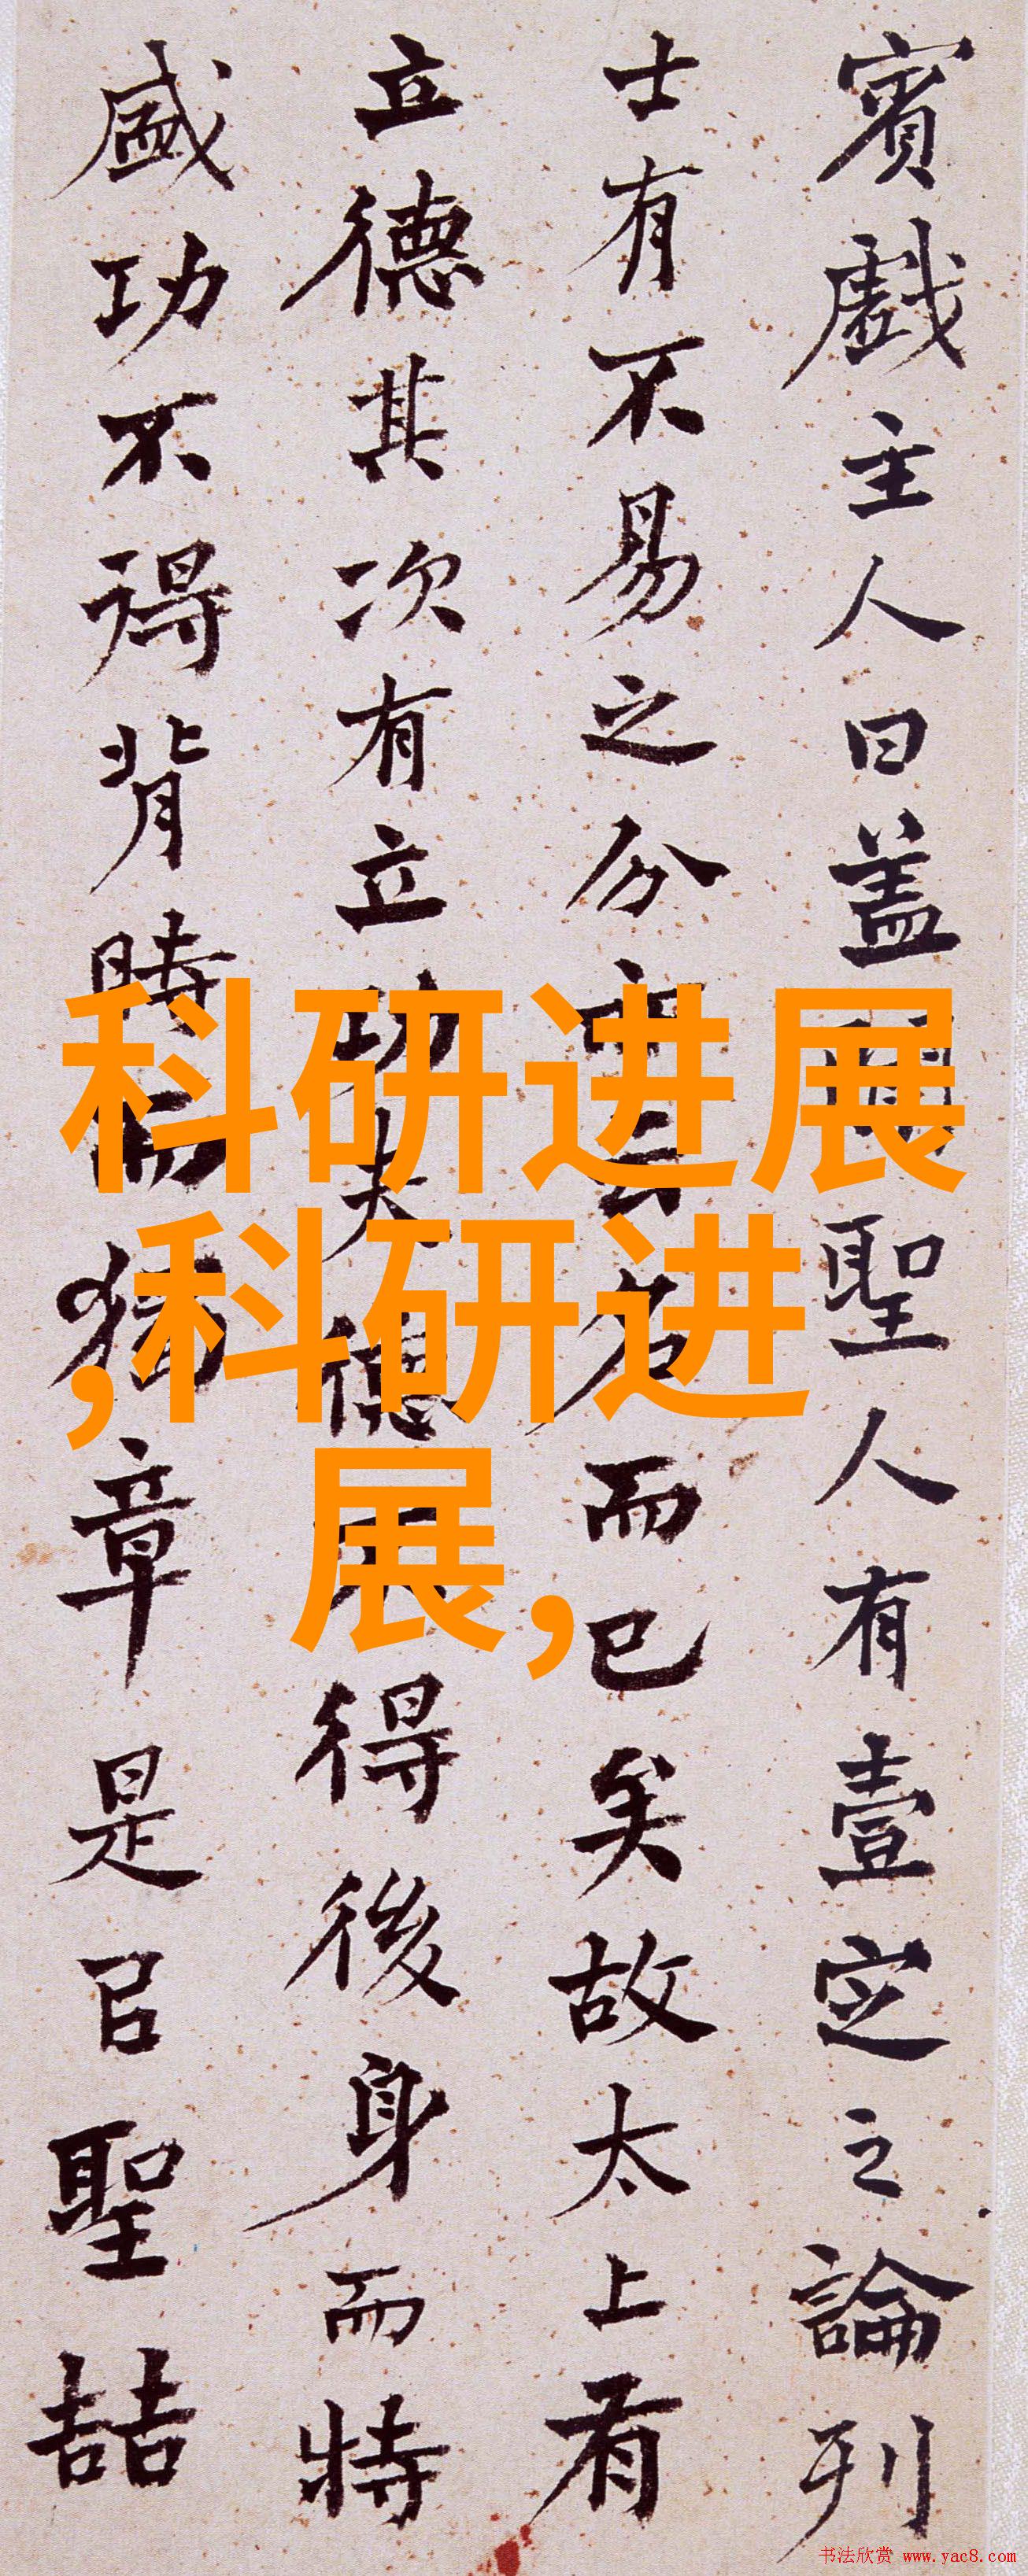 賓戲主人曰盖聞聖人有壹定之論列
士有不易之分亦云名而已矣故太上有
立德其次有立功夫德不得後身而特
盛功不得背時而獨章是㠯聖喆
科研进展
,科研进
展,
书法欣赏 www.yac8.com